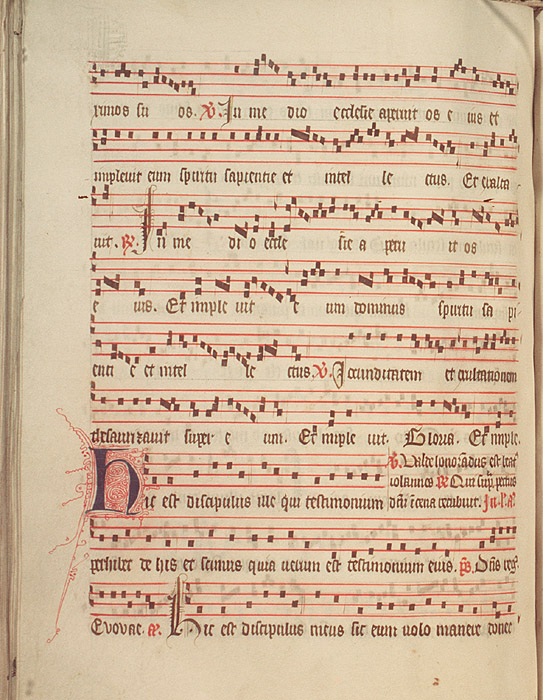 ximos su os. V. In me dio ecclesie aperuit os e ius et
impleuit eum spiritu sapientie et intel le ctus. Et exalta
uit. R. In me di o eccle sie a peru it os
e ius. Et imple uit e um dominus spiritu sa pi
enti e et intel le ctus. V. Iocunditatem et exultationem
thesaurizauit super e um. Et imple uit. Gloria. Et imple.
V. Valde honorandus est beat
iohannes R. Qui supra pectus
Hic est discipulus ille qui testimonium dni i cena recubuit. In l. a.
perhibet de his et scimus quia uerum est testimonium eius. ps. Dns reg.
Evovae. a. Hic est discipulus meus sic eum uolo manere donec